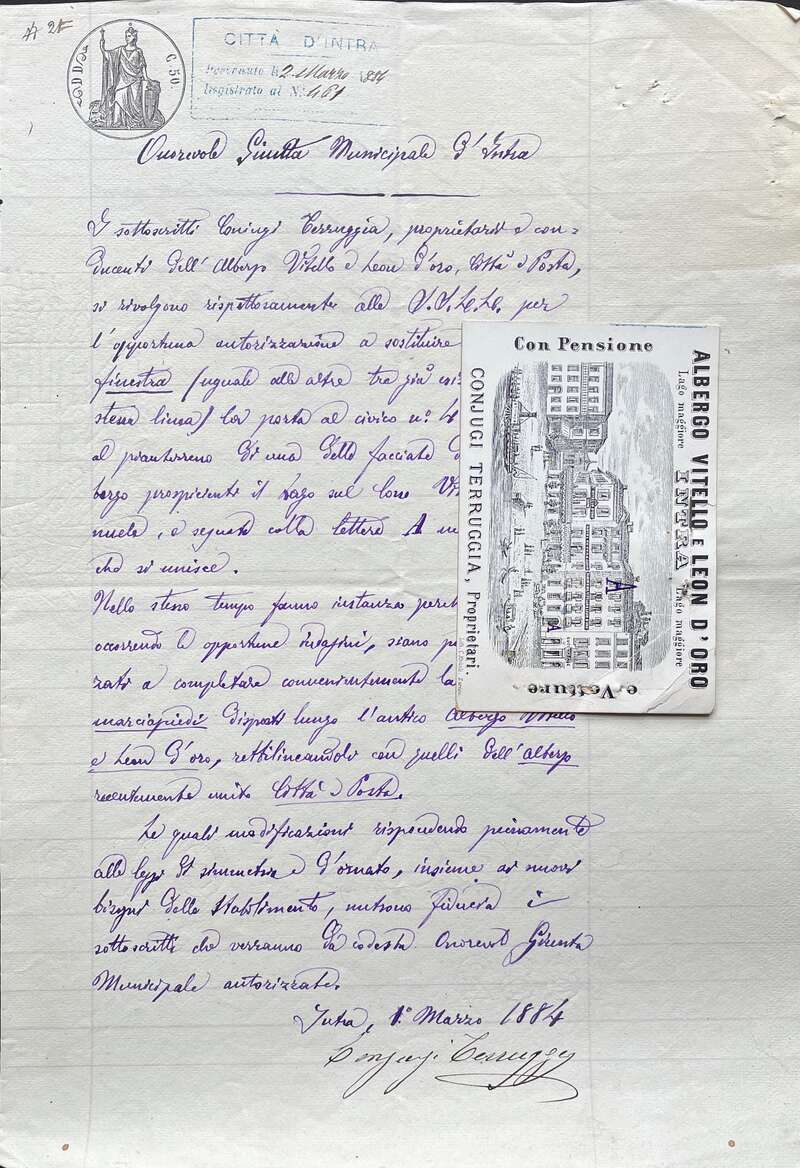 C. 50.
CITTÀ D'INTRA
Pervenuto li 2 Marzo 1884
Registrato al N. 461
Onorevole Giunta Municipale d'Intra
I sottoscritti Coniugi Terruggia, proprietari e con=
ducenti dell'Albergo Vitello e Leon d'oro, Città e Posta,
si rivolgono rispettosamente alle S.S. L.L. per
l'opportuna autorizzazione a sostituire
finestra (uguale alle altre tre già
stessa linea) la porta al civico n.° 4
al pianterreno di una delle facciate
bergo prospicienti il Lago sul
nuele, e segnata colla lettera A
che si unisce.
Nello stesso tempo fanno instanza
occorrendo le opportune indagini, siano
zati a completare convenientemente la
marciapiedi disposti lungo l'antico Albergo Vitello
e Leon d'oro, rettilineandolo con quelli dell'albergo
recentemente unito Città e Posta.
Le quali modificazioni rispondendo pienamente
alle leggi di simmetria e d'ornato, insieme ai nuovi
bisogni dello Stabilimento, nutrono fiducia i
sottoscritti che verranno da codesta Onorevole Giunta
Municipale autorizzate.
Intra, 1.° Marzo 1884
Conjugi Terruggia
ALBERGO VITELLO E LEON D'ORO
Lago maggiore INTRA Lago maggiore
Con Pensione
e Vetture
A
A
CONJUGI TERRUGGIA, Proprietari.